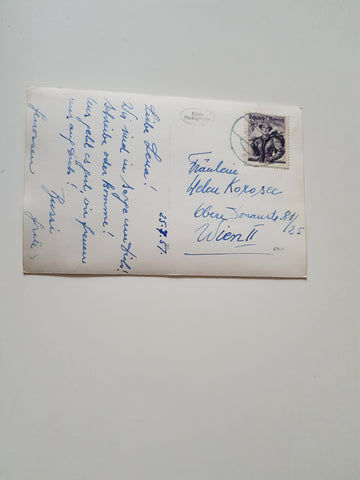 25.7.57.
Liebe Lena!
Wir sind in Sorge um Dich!
Schreibe oder komme!
Uns geht es gut, wir freuen
uns auf Dich!
Bussi
Echte
Photographie
Republik Österreich
Fräulein
Helen Korosec
Obere Donaustr. 81/25
Wien II